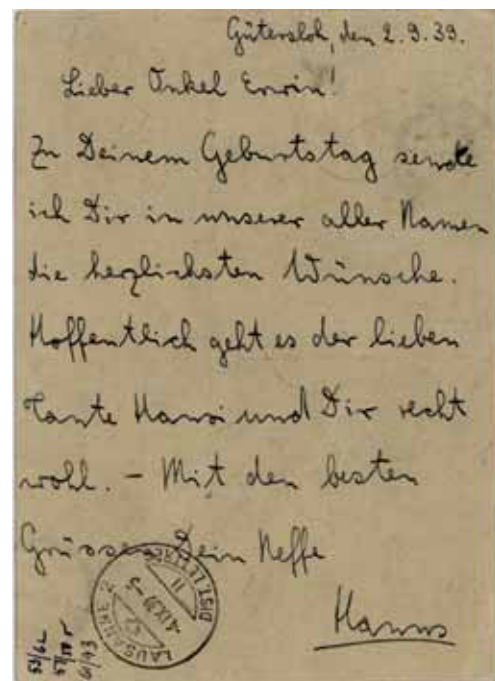 Gütersloh, den 2.9.39.
Lieber Onkel Erwin!
Zu Deinem Geburtstag sende
ich Dir in unserer aller Namen
die herzlichsten Wünsche.
Hoffentlich geht es der lieben
Tante Hansi und Dir recht
wohl. – Mit den besten
Grüssen Dein Neffe
Hanns
LAUSANNE 2
-4.IX.39-5
DIST. LETTRES
II